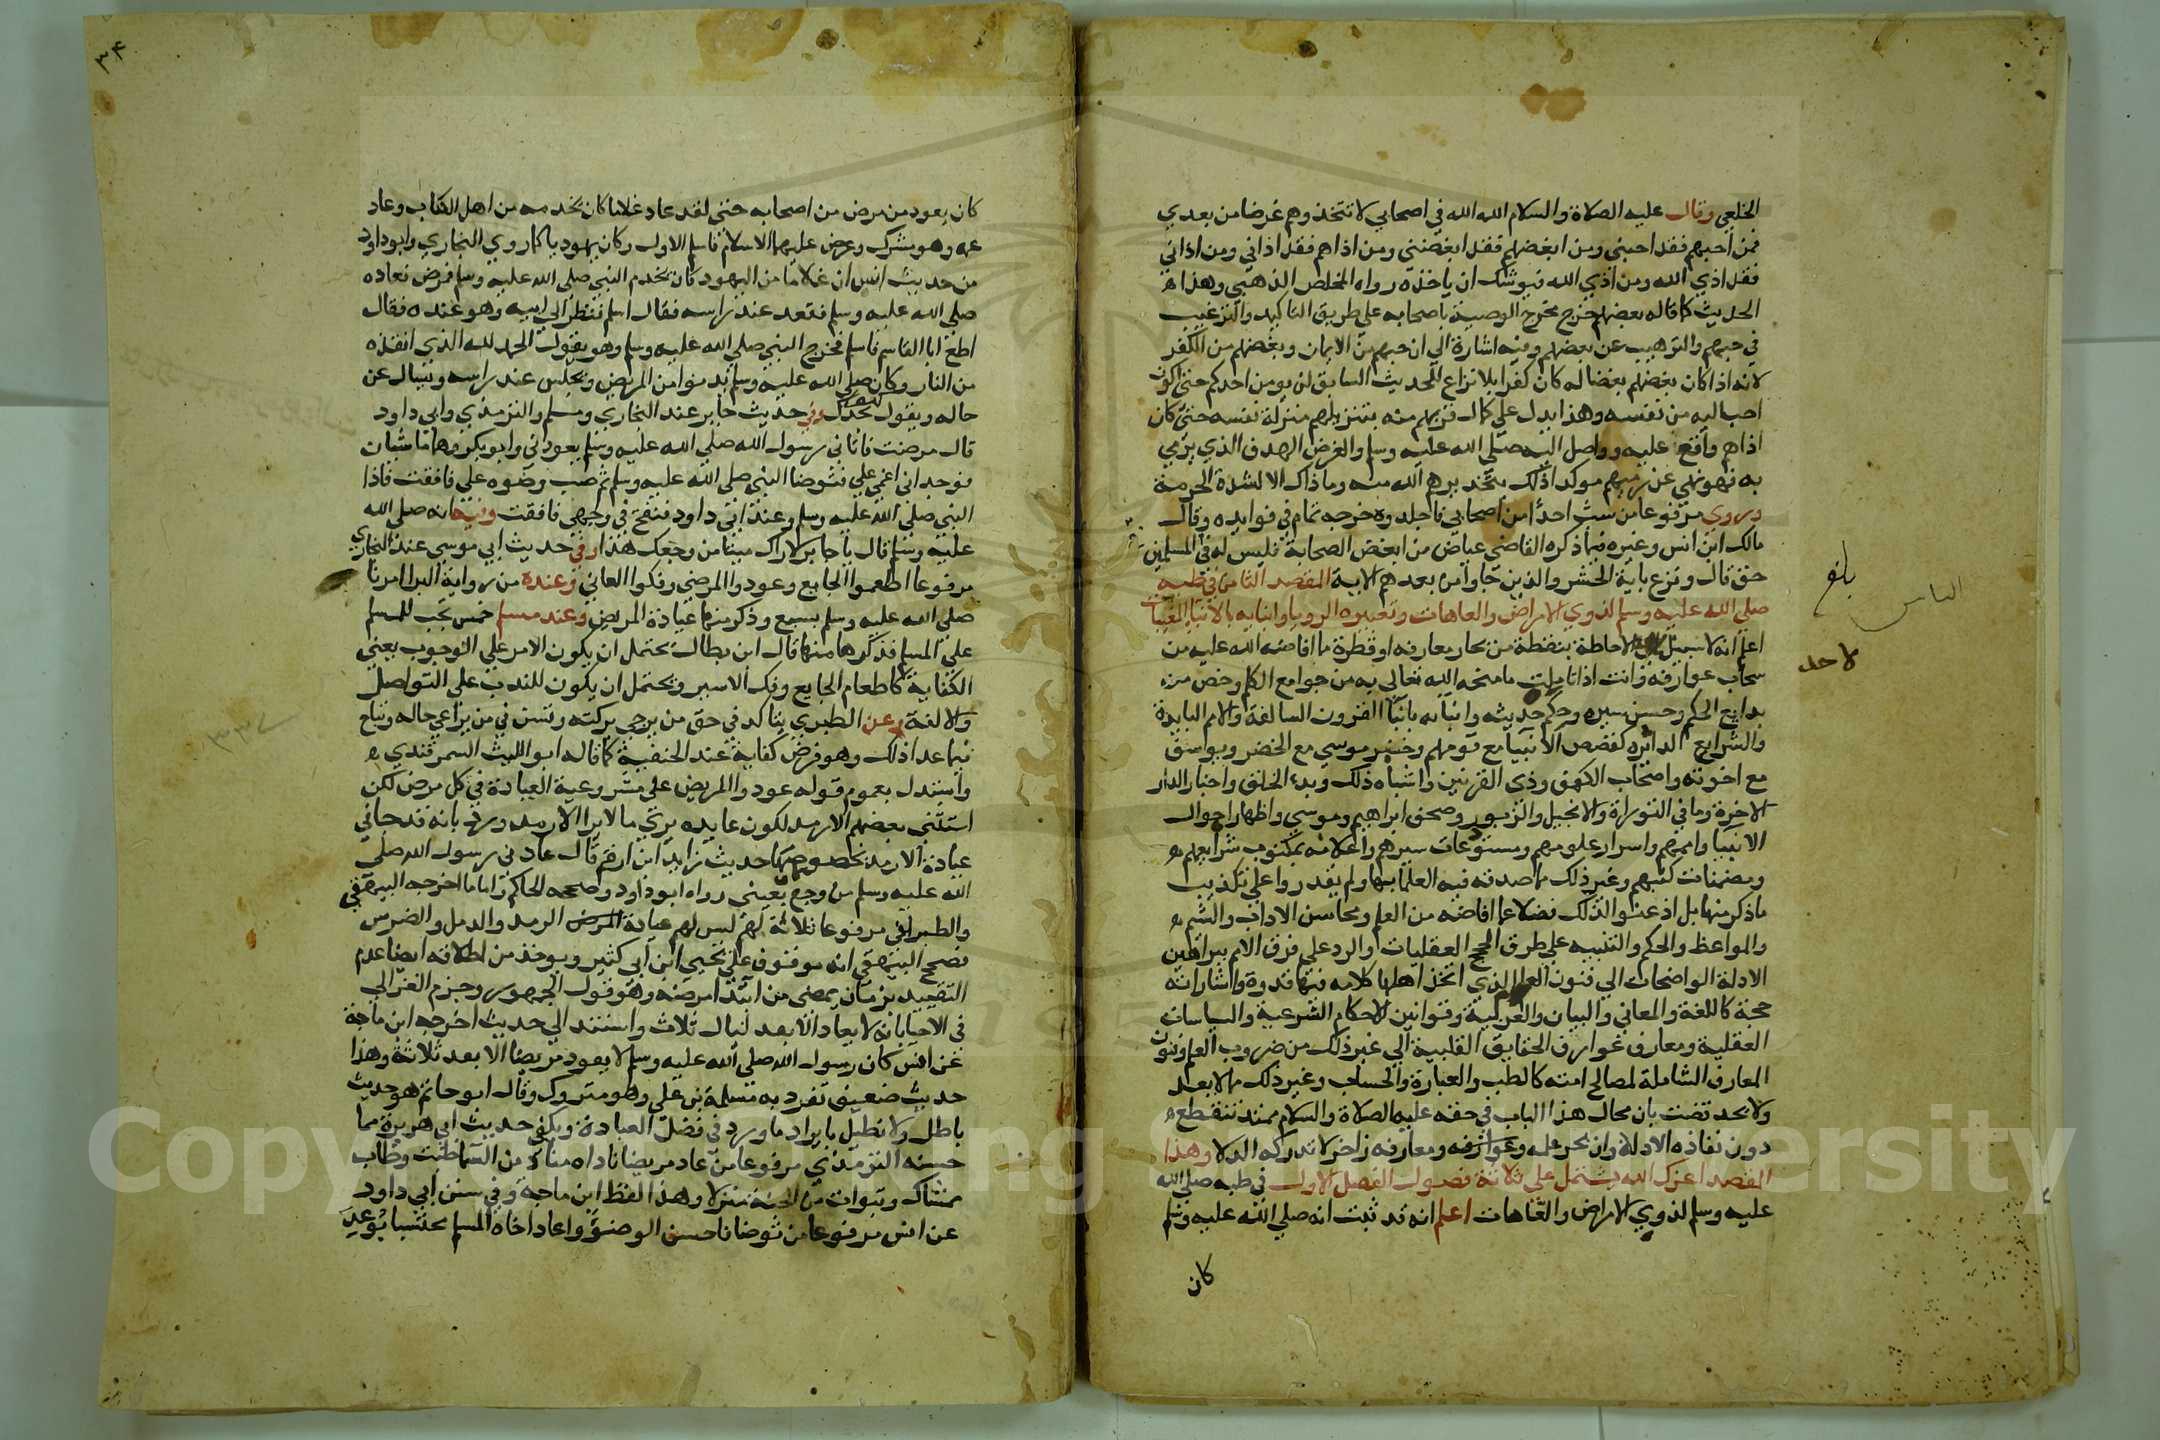 الخلعي وقال عليه الصلاة والسلام الله الله في اصحابي لا تتخذوهم غرضا من بعدي
فمن احبهم فقد احبني ومن ابغضهم فقد ابغضني ومن اذاهم فقد اذاني ومن اذاني
فقد اذي الله ومن اذي الله فيوشك ان ياخذه رواه المخلص الذهبي وهذا
الحديث كما قاله بعضهم خرج مخرج الوصية باصحابه علي طريق التاكيد والترغيب
في حبهم والترهيب عن بعضهم وفيه اشارة الي ان حبهم من الايمان وبغضهم من الكفر
لانه اذا كان بغضهم بغضا له كان كفرا بلا نزاع للحديث السابق لن يومن احدكم حتي اكون
احب اليه من نفسه وهذا يدل علي كمال قربهم منه بتنزيلهم منزلة نفسه حتي كان
اذاهم واقع عليه وواصل اليه صلي الله عليه وسلم والغرض الهدف الذي يرمي
به فهو نهي عن رميهم موكد اذلك بتحذيرهم الله منه وما ذاك الا لشدة الحرمة
وروي مرفوعا من سب احدا من اصحابي فاجلدوه خرجه تمام في فوايده وقال
مالك ابن انس وغيره فيما ذكره القاضي عياض من ابغض الصحابة فليس له في المسلمين
حق قال ونزع باية الحشر والذين جاوا من بعدهم الاية المقصد الثامن في طبه
صلي الله عليه وسلم لذوي الامراض والعاهات وتعبيره الرويا وانبايه بالانبا المغيبات
اعلم انه لا سبيل لاحد الاحاطة بنقطة من بحار معارفه او قطرة مما افاضه الله عليه من
سحاب عوارفه وانت اذا تاملت ما منحه الله تعالي به من جوامع الكلم وخص من
بدايع الحكم وحسن سيره وحكم حديثه وانبايه بانبا القرون السالفة والامم البايدة
والشرايع الداثره كقصص الانبيا مع قومهم وخبر موسي مع الخضر ويوسف
مع اخوته واصحاب الكهف وذي القرنين واشباه ذلك وبدء الخلق واخبار الدار
الاخرة وما في التوراة والانجيل والزبور وصحف ابراهيم وموسي واظهار احوال
الانبيا واممهم واسرار علومهم ومستودعات سيرهم واعلامه بمكتوب شرايعهم
ومضمنات كتبهم وغير ذلك مما صدقه فيه العلما بها ولم يقدروا علي تكذيب
ما ذكر منها بل اذعنوا لذلك فضلا عما افاضه من العلم ومحاسن الاداب والشيم
والمواعظ والحكم والتنبيه علي طرق الحجج العقليات والرد علي فرق الامم ببراهين
الادلة الواضحات الي فنون العلم الذي اتخذ اهلها كلامه فيها قدوة واشاراته
حجة كاللغة والمعاني والبيان والعربية وقوانين الاحكام الشرعية والسياسات
العقلية ومعارف عوارف الحقايق القلبية الي غير ذلك من ضروب العلم وفنون
المعارف الشاملة لمصالح امته كالطب والعبارة والحساب وغير ذلك مما لا يعد
ولا يحد قضت بان مجال هذا الباب في حقه عليه الصلاة والسلام ممتد تنقطع
دون نفاذه الادلة وان بحر علمه وعوارفه ومعارفه زاخر لا تدركه الدلا وهذا
المقصد اعزك الله يشتمل علي ثلاثة فصول الفصل الاول في طبه صلي الله
عليه وسلم لذوي الامراض والعاهات اعلم انه قد ثبت انه صلي الله عليه وسلم
كان
بلغ
الناس
لاحد
٣٤
كان يعود من مرض من اصحابه حتي لقد عاد غلاما كان يخدمه من اهل الكتاب وعاد
عمه وهو مشرك وعرض عليهما الاسلام فاسلم الاول وكان يهوديا كما روي البخاري وابو داود
من حديث انس ان غلاما من اليهود كان يخدم النبي صلي الله عليه وسلم فمرض فعاده
صلي الله عليه وسلم فقعد عند راسه فقال اسلم فنظر الي ابيه وهو عنده فقال
اطع ابا القاسم فاسلم فخرج النبي صلي الله عليه وسلم وهو يقول الحمد لله الذي انقذه
من النار وكان صلي الله عليه وسلم يدنوا من المريض ويجلس عند راسه ويسال عن
حاله ويقول كيف تجدك وفي حديث جابر عند البخاري ومسلم والترمذي وابي داود
قال مرضت فاتاني رسول الله صلي الله عليه وسلم يعودني وابو بكر وهما ماشيان
فوجداني اغمي علي فتوضا النبي صلي الله عليه وسلم ثم صب وضوه علي فافقت فاذا
النبي صلي الله عليه وسلم وعند ابي داود فنفخ في وجهي فافقت وفيه انه صلي الله
عليه وسلم قال يا جابر لا اراك ميتا من وجعك هذا وفي حديث ابي موسي عند البخاري
مرفوعا اطعموا الجايع وعودوا المرضي وفكوا العاني وعنده من رواية البرا امرنا
صلي الله عليه وسلم بسبع وذكر منها عيادة المريض وعند مسلم خمس تجب للمسلم
علي المسلم فذكرها منها قال ابن بطال يحتمل ان يكون الامر علي الوجوب يعني
الكفاية كاطعام الجايع وفك الاسير ويحتمل ان يكون للندب علي التواصل
والالفة وعن الطبري يتاكد في حق من يرجي بركته وتسن في من يراعي حاله وتباح
فيما عدا ذلك وهو فرض كفاية عند الحنفية كما قاله ابو الليث السمرقندي
واستدل بعموم قوله عودوا المريض علي مشروعية العيادة في كل مرض لكن
استثني بعضهم الارمد لكون عايده يري ما لا يرا الارمد ورد بانه قد جا في
عيادة الارمد بخصوصها حديث زايد ابن ارقم قال عادني رسول الله صلي
الله عليه وسلم من وجع بعيني رواه ابو داود وصححه الحاكم واما ما اخرجه البيهقي
والطبراني مرفوعا ثلاثة لهم ليس لهم عيادة المرض الرمد والدمل والضرس
فصحح البيهقي انه موقوف علي يحيي ابن ابي كثير ويوخذ من اطلاقه ايضا عدم
التقييد بزمان يمضي من ابتدا مرضه وهو قول الجمهور وجزم الغزالي
في الاحيا بانه لا يعاد الا بعد ليال ثلاث واستند الي حديث اخرجه ابن ماجة
عن انس كان رسول الله صلي الله عليه وسلم لا يعود مريضا الا بعد ثلاثة وهذا
حديث ضعيف تفرد به مسلمة بن علي وهو متروك وقال ابو حاتم هو حديث
باطل ولا نطيل بايراد ما ورد في فضل العيادة ويكفي حديث ابي هريرة مما
حسنه الترمذي مرفوعا من عاد مريضا ناداه مناد من السما طبت وطاب
ممشاك وتبوات من الجنة منزلا وهذا لفظ ابن ماجة وفي سنن ابي داود
عن انس مرفوعا من توضا فاحسن الوضوء واعاد اخاه المسلم محتسبا بوعد
Copyright © King Saud University